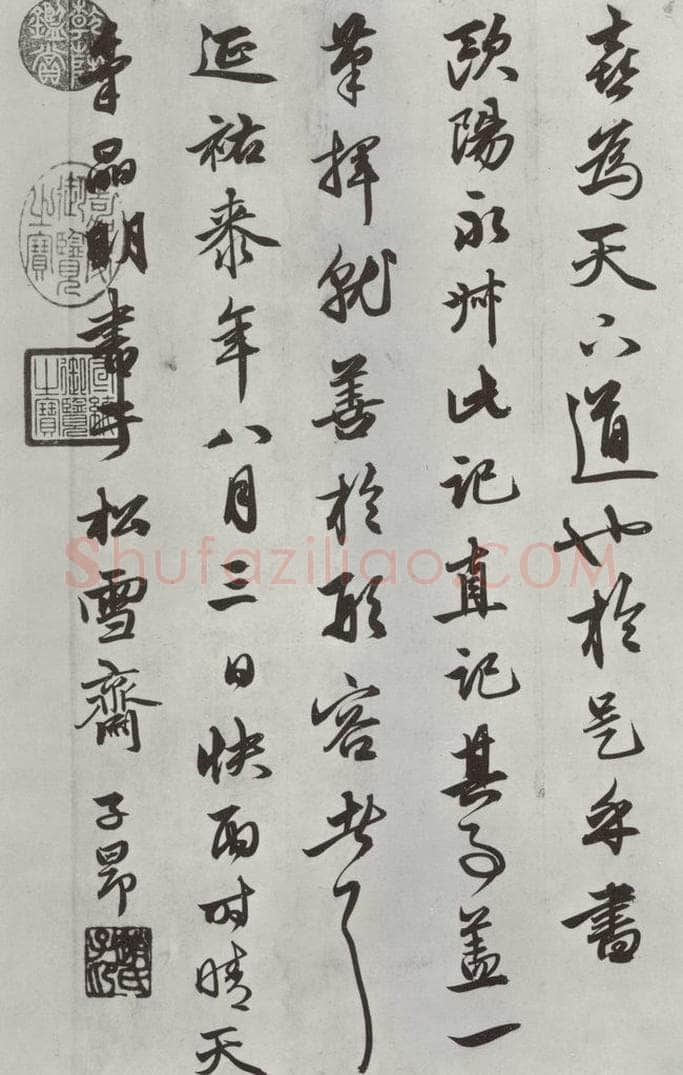 喜為天下道也於是乎書
歐陽永叔此記直記其事蓋一
筆揮就善於形容者耳
延祐年八月三日快雨时晴天
氣晶明書于松雪齋
子昂
趙氏子昂
乾隆鑑賞
嘉慶御覽之寶
宣統御覽之寶
Shufaziliao.COM